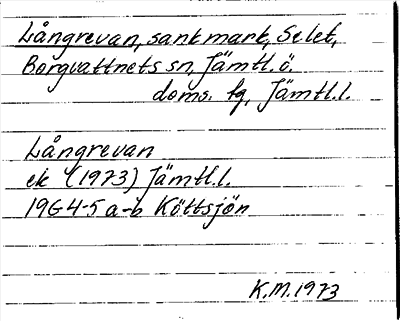 Långrevan, sankmark, Selet,
Borgvattnets sn, Jämtl.ö.
doms. fg, Jämtl.l.
Långrevan
ek (1973) Jämtl.l.
19G4-5 a-b Köttsjön
K.M.1973